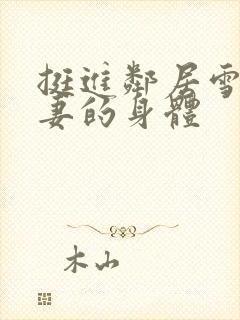 挺進鄰居雪
妻的身體
木山